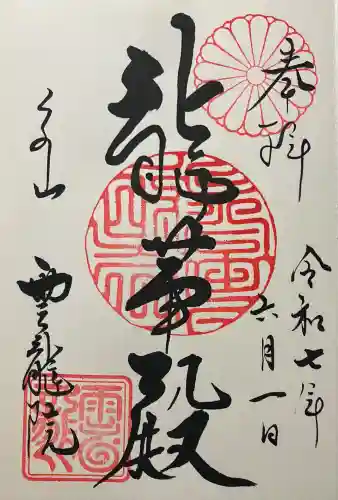 奉拝
令和七年
六月一日
龍華殿
雲龍院